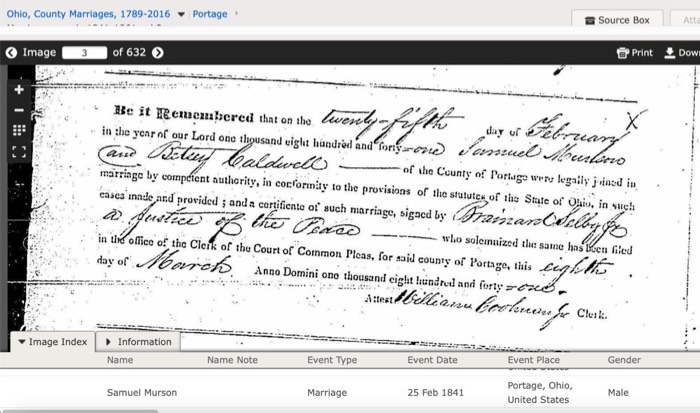 Ohio, County Marriages, 1789-2016 Portage
Source Box
Image 3 of 632
Print
Down
Be it Remembered that on the twenty-fifth day of February
in the year of our Lord one thousand eight hundred and forty-one Samuel
and Betsey Caldwell of the County of Portage were legally joined in
marriage by competent authority, in conformity to the provisions of the statutes of the State of Ohio, in such
cases made and provided; and a certificate of such marriage, signed by Brainard Selby Jr
a Justice of the Peace who solemnized the same has been filed
in the office of the Clerk of the Court of Common Pleas, for said county of Portage, this eighth
day of March Anno Domini one thousand eight hundred and forty-one.
Attest William Jr Clerk.
Image Index Information
Name Name Note Event Type Event Date Event Place Gender
United States
Samuel Murson Marriage 25 Feb 1841 Portage, Ohio, Male
United States